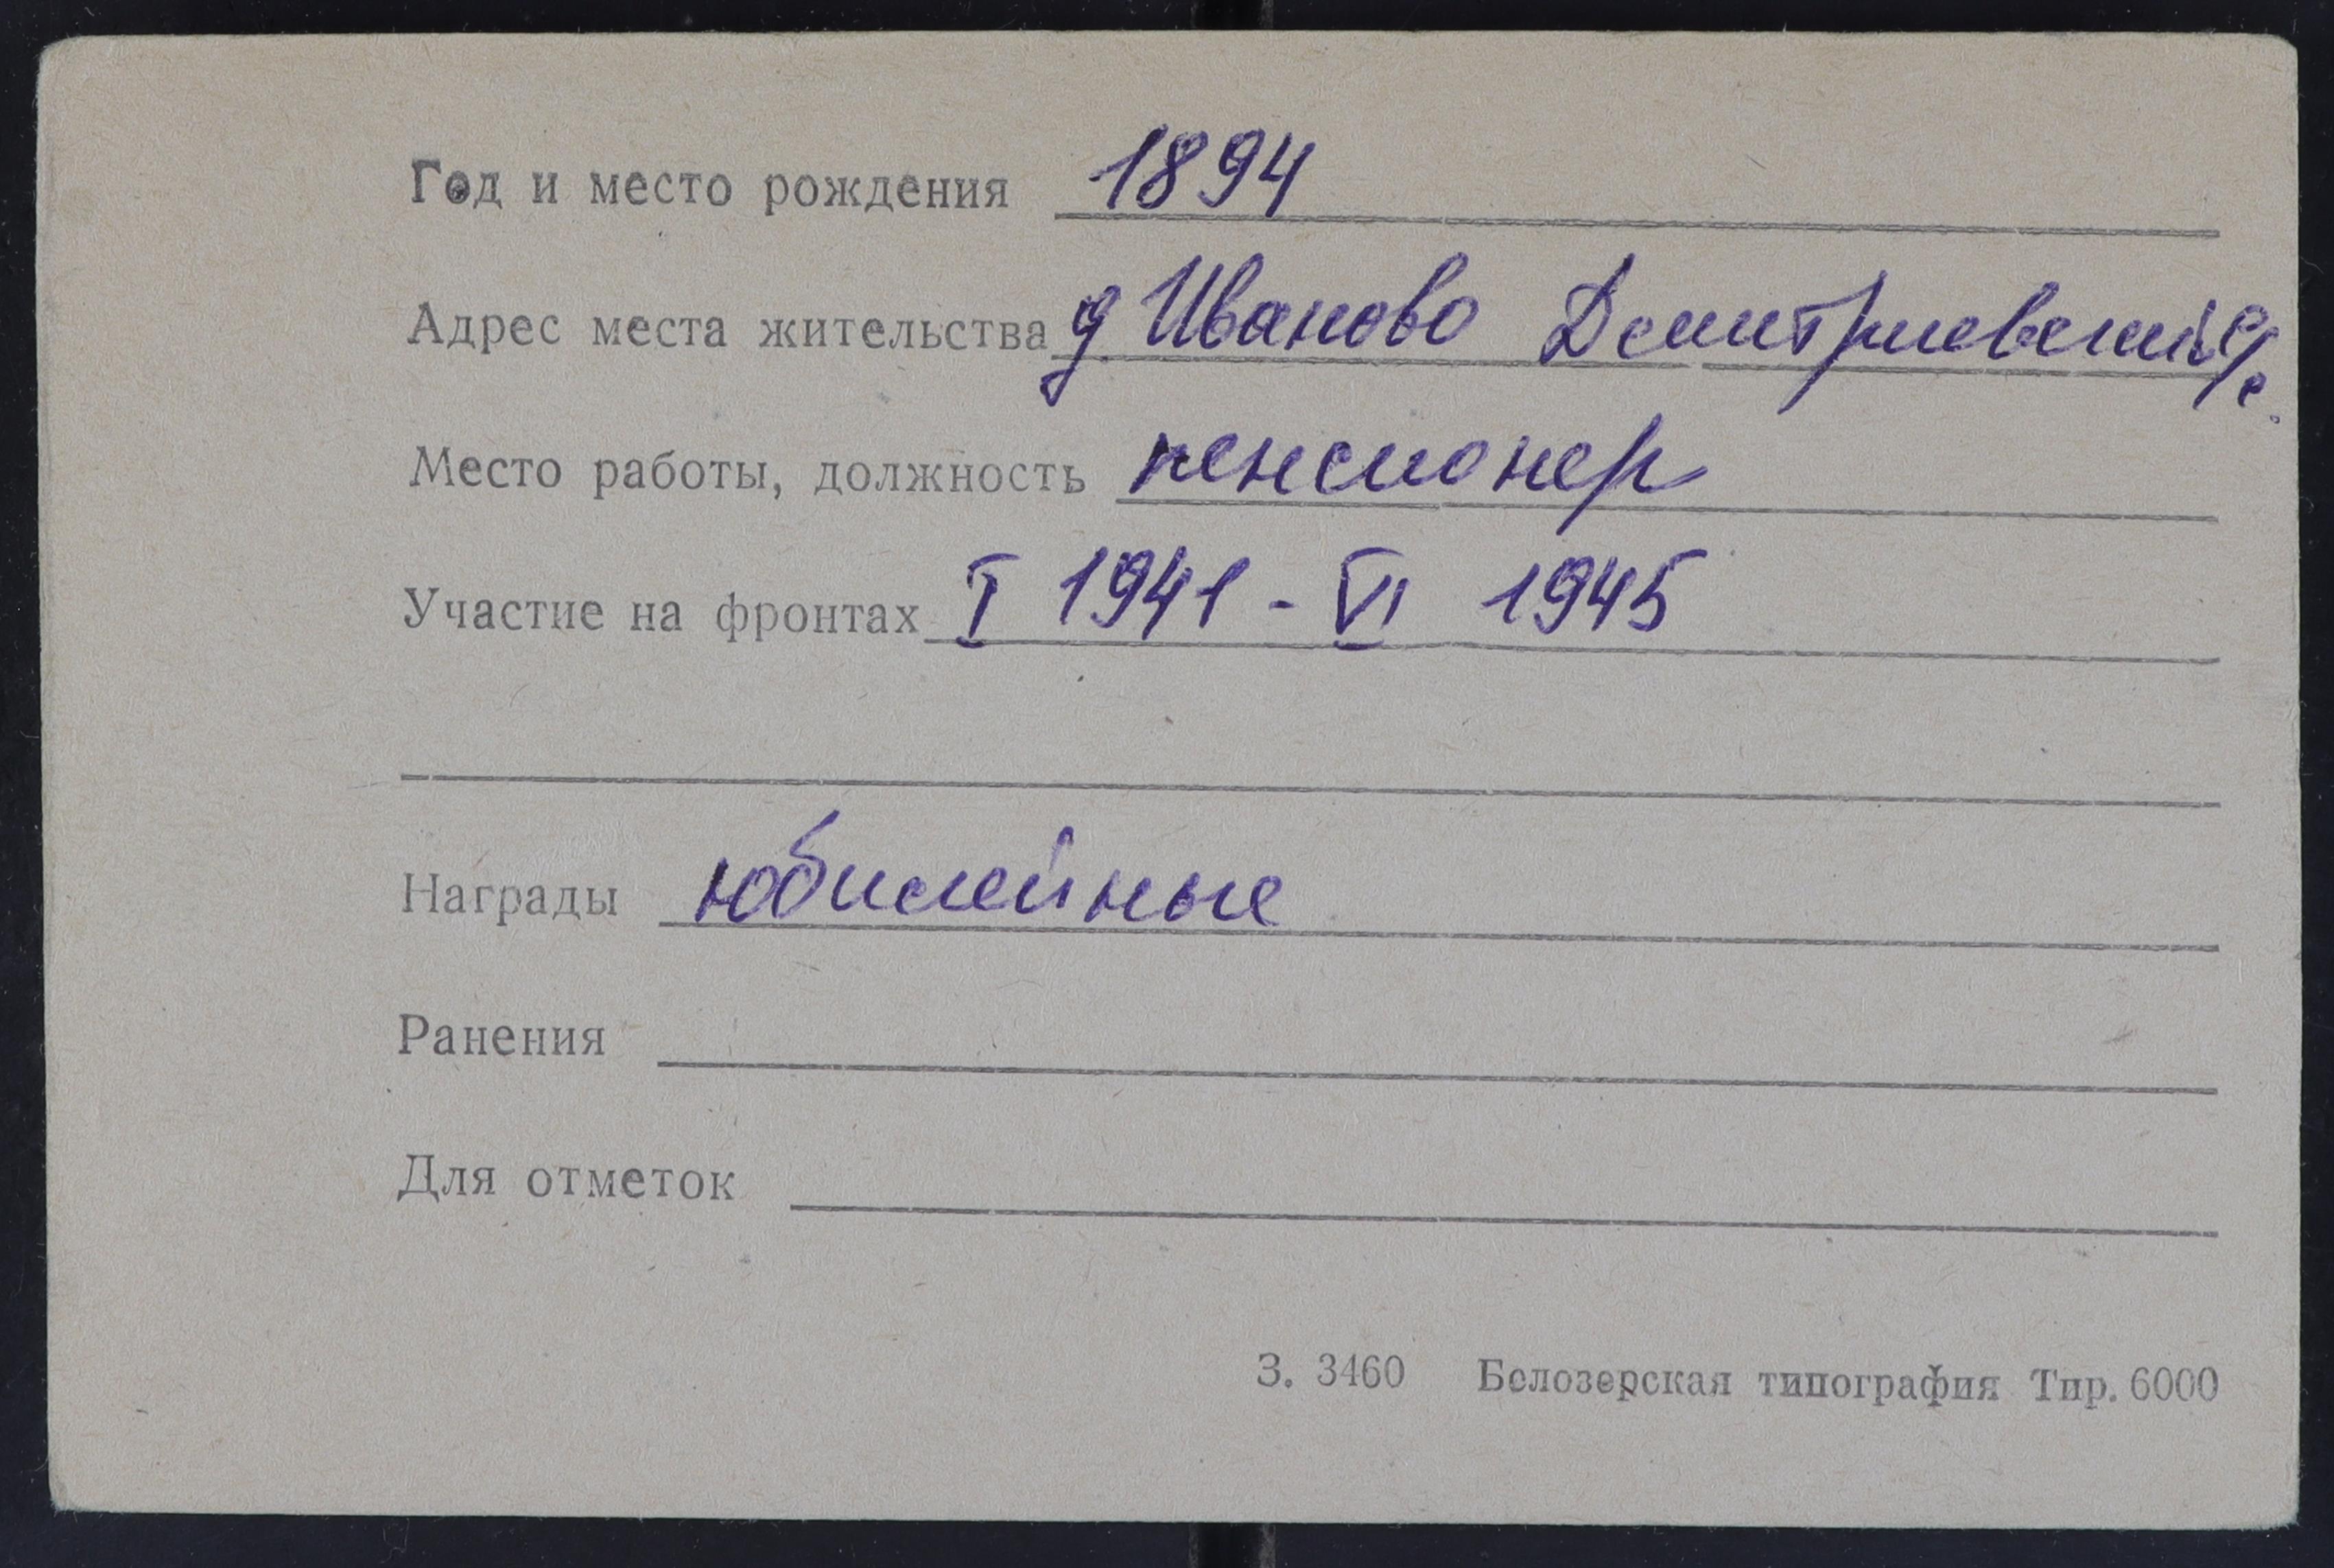 Год и место рождения 1894
Адрес места жительства д. Иваново Демитриевский с/с.
Место работы, должность пенсионер
Участие на фронтах I 1941 - VI 1945
Награды юбилейные
Ранения
Для отметок
З. 3460 Белозерская типография Тир. 6000